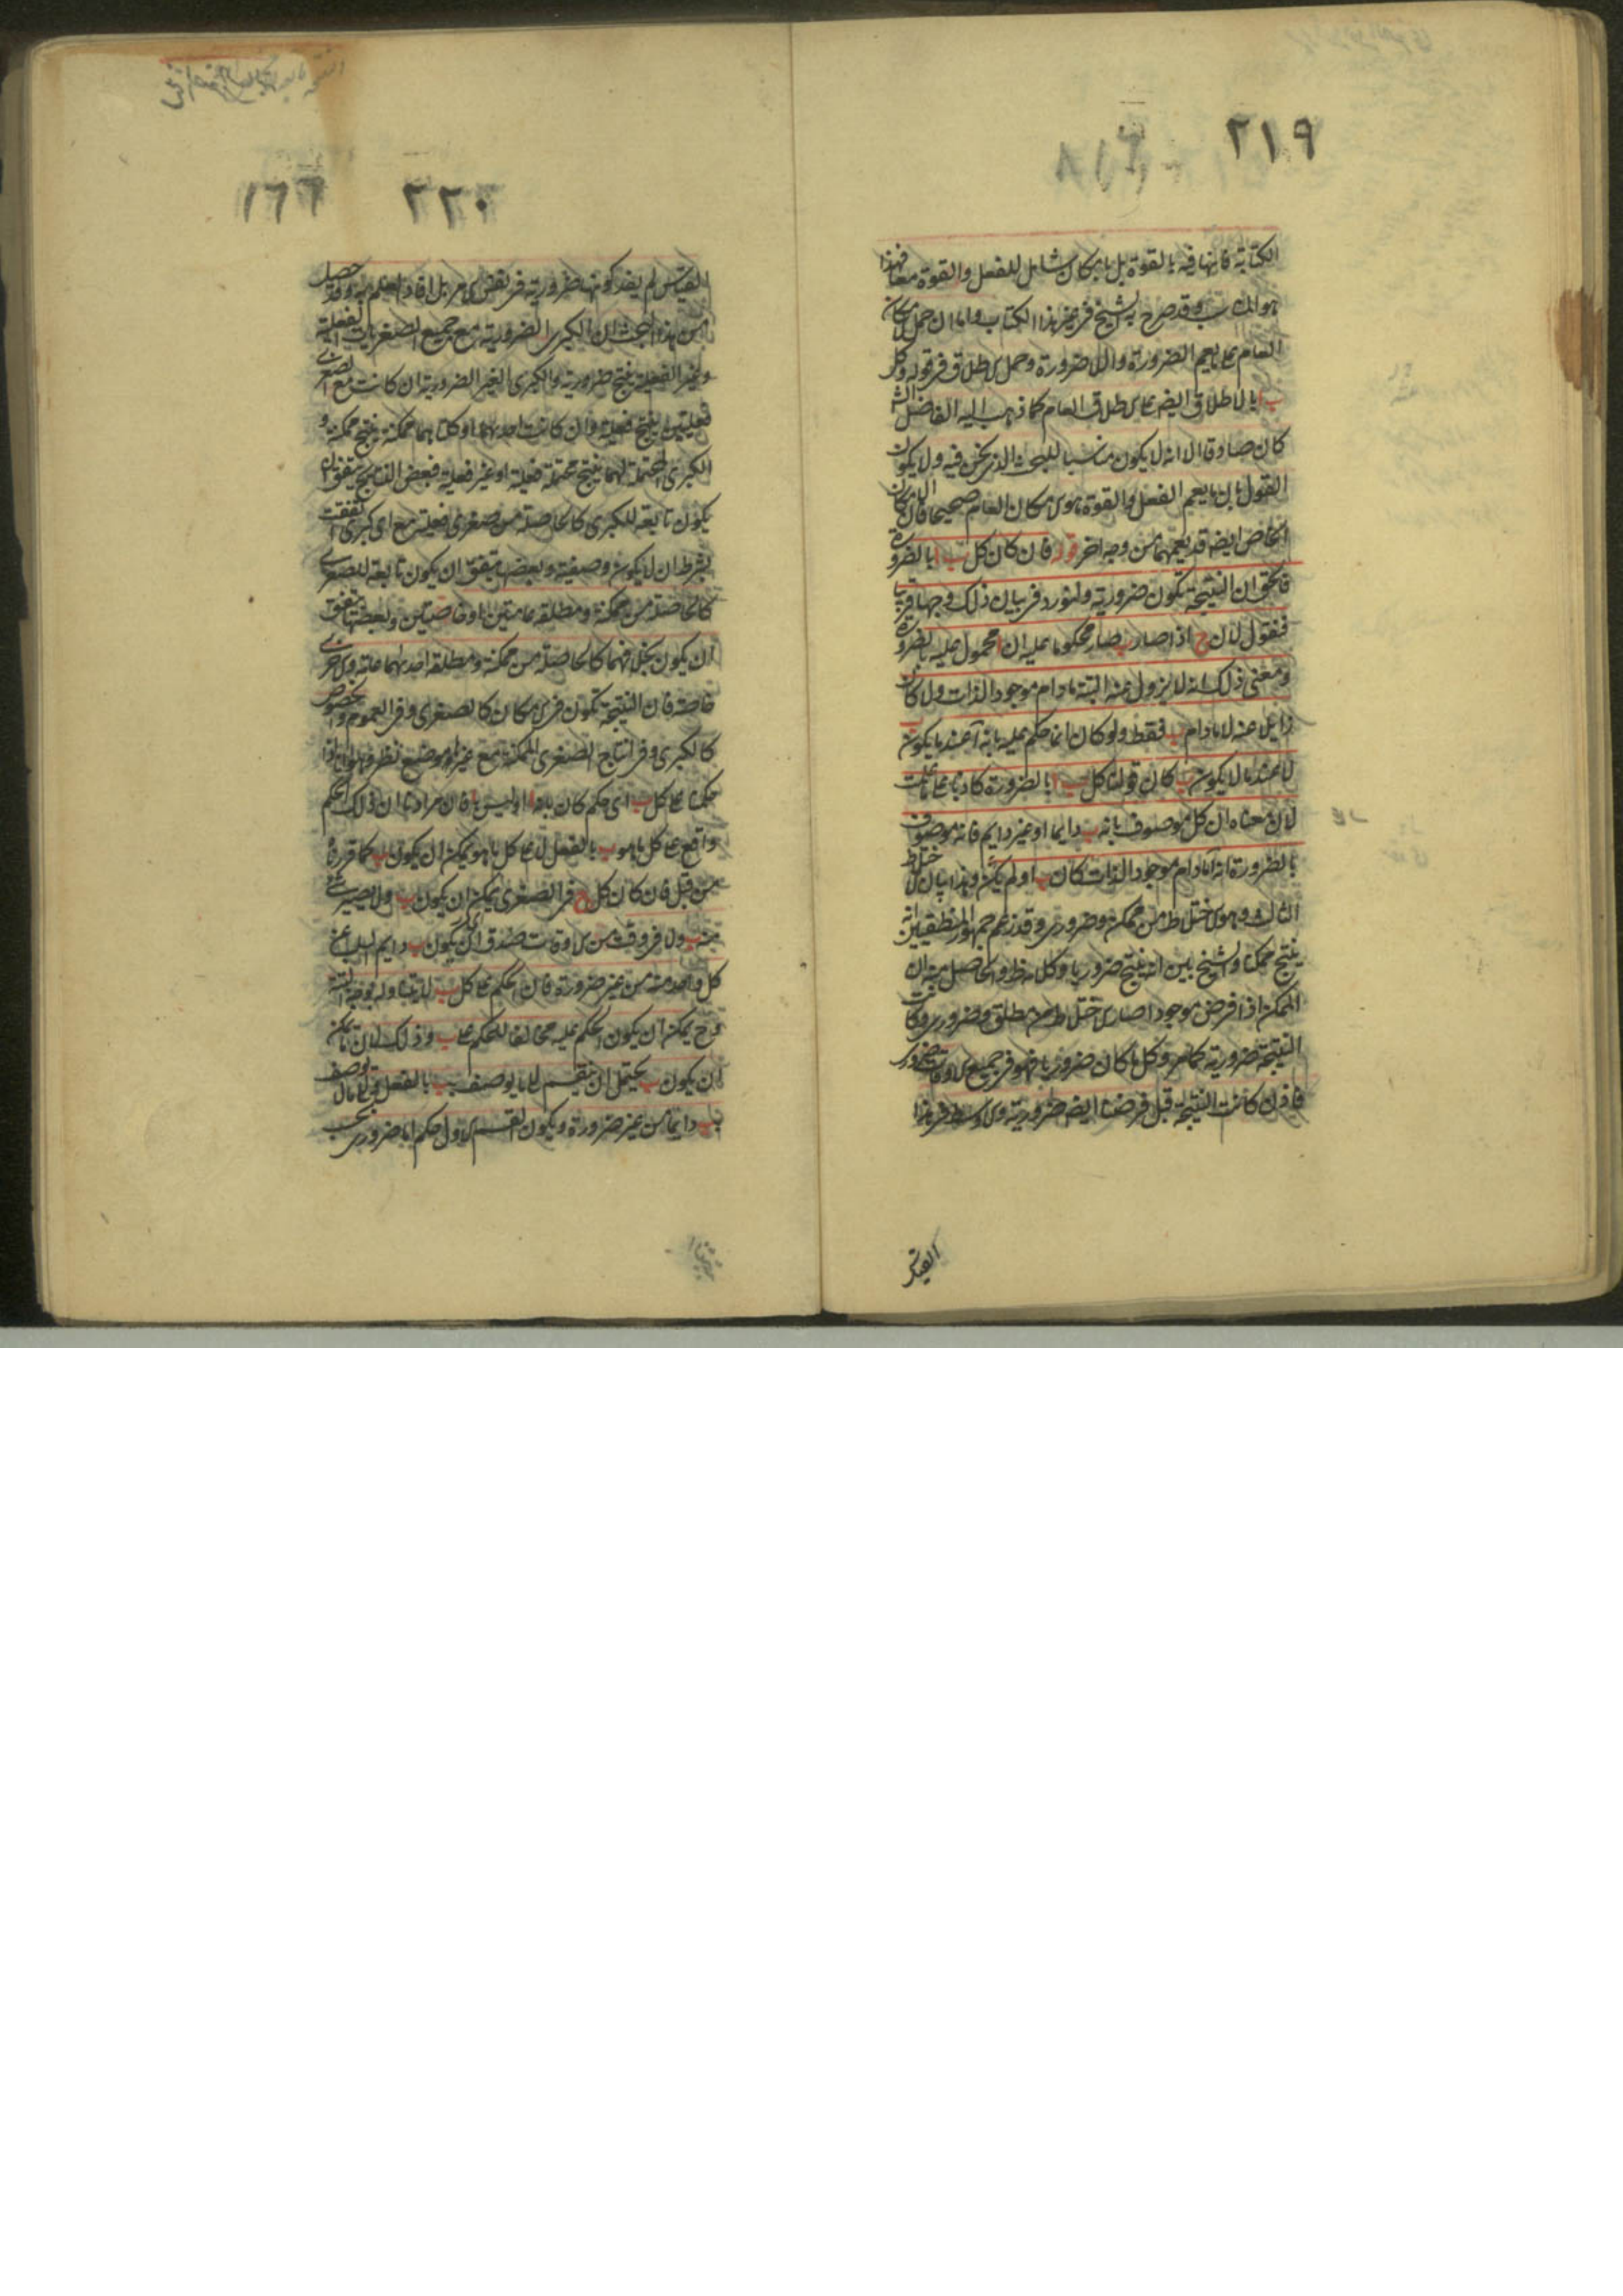 ٢١٩
الكتابة فانها فيه بالقوة بل بامكان شامل للفعل والقوة معا فهذا
هو المناسب وقد صرح به الشيخ في غير هذا الكتاب واما ان حمل الامكان
العام على ما يعم الضرورة واللاضرورة وحمل الاطلاق في قوله وكل
ب ا بالاطلاق ايضه على الاطلاق العام كما ذهب اليه الفاضل الش
كان صادقا الا انه لا يكون مناسبا للبحث الذي نحن فيه ولا يكون
القول بان ما يعم الفعل والقوة هو الامكان العام صحيحا فان الامكان
الخاص ايضه قد يعمهما من وجه اخر قوله فان كان كل ب ا بالضرورة
فالحق ان النتيجة تكون ضرورية ولنورد في بيان ذلك وجها قريبا
فنقول لان ج اذا صار ب صار محكوما عليه ان ا محمول عليه بالضرورة
ومعنى ذلك انه لا يزول عنه البتة مادام موجود الذات ولا كان
زايلا عنه لا مادام ب فقط ولو كان انما حكم عليه بانه ا عند ما يكون ب
لا عند ما لا يكون ب كان قولنا كل ب ا بالضرورة كاذبا على ما علمت
لان معناه ان كل موصوف بانه ب دايما او غير دايم فانه موصوف
بالضرورة انه ا مادام موجود الذات كان ب او لم يكن وهذا بيان الاختلاط
الثالث وهو الاختلاط من ممكن وضروري وقد زعم جمهور المنطقيين انه
ينتج ممكنا والشيخ بين انه ينتج ضروريا وكلامه ظ والحاصل منه ان
الممكن اذا فرض موجودا صار الاختلاط من مطلق وضروري وكانت
النتيجة ضرورية كما مر وكل ما كان ضروريا فهو في جميع الاوقات ضروري
فاذن كانت النتيجة قبل فرضنا ايضه ضرورية والاوسط في هذا
القياس
٢٢٠
١٦٦
القياس لم يفد كونها ضرورية في نفس الامر بل افاد العلم به وقد حصل
من هذا البحث ان الكبرى الضرورية مع جميع الصغريات الفعلية
وغير الفعلية ينتج ضرورية والكبرى الغير الضرورية ان كانت مع الصغرى
فعليتين ينتج فعلية وان كانت احديهما او كلتاهما ممكنة ينتج ممكنة و
الكبرى المحتملة لهما ينتج محتملة فعلية او غير فعلية فبعض النتايج يتفق ان
يكون تابعة للكبرى كالحاصلة من صغرى فعلية مع اي كبرى اتفقت
بشرط ان لا يكون وصفية وبعضها يتفق ان يكون تابعة للصغرى
كالحاصلة من ممكنة ومطلقة عامتين او خاصتين وبعضها يتفق
ان يكون بخلافهما كالحاصلة من ممكنة ومطلقة احديهما عامة والاخرى
خاصة فان النتيجة تكون في الامكان كالصغرى وفي العموم والخصوص
كالكبرى وفي انتاج الصغرى الممكنة مع غيره موضع نظر وهو انا اذا
حكمنا على كل ب اي حكم كان بانه ا او ليس ا فان مرادنا ان ذلك الحكم
واقع على كل ما هو ب بالفعل لا على كل ما هو يمكن ان يكون ب كما قررنا
من قبل فان كان كل ج في الصغرى يمكن ان يكون ب ولا يصير شي
منه ب ولا في وقت من الاوقات صدق ان يكون ب دايم السلب عن
كل واحد منه من غير ضرورة فان الحكم على كل ب لا يتناوله بوجه البتة
وح يمكن ان يكون الحكم عليه مخالفا للحكم على ب وذلك لان ما يمكن
ان يكون ب يحتمل ان ينقسم الى ما يوصف بب بالفعل والى ما لا يوصف
بب دايما من غير ضرورة ويكون القسم الاول حكم اما ضروري بحسب